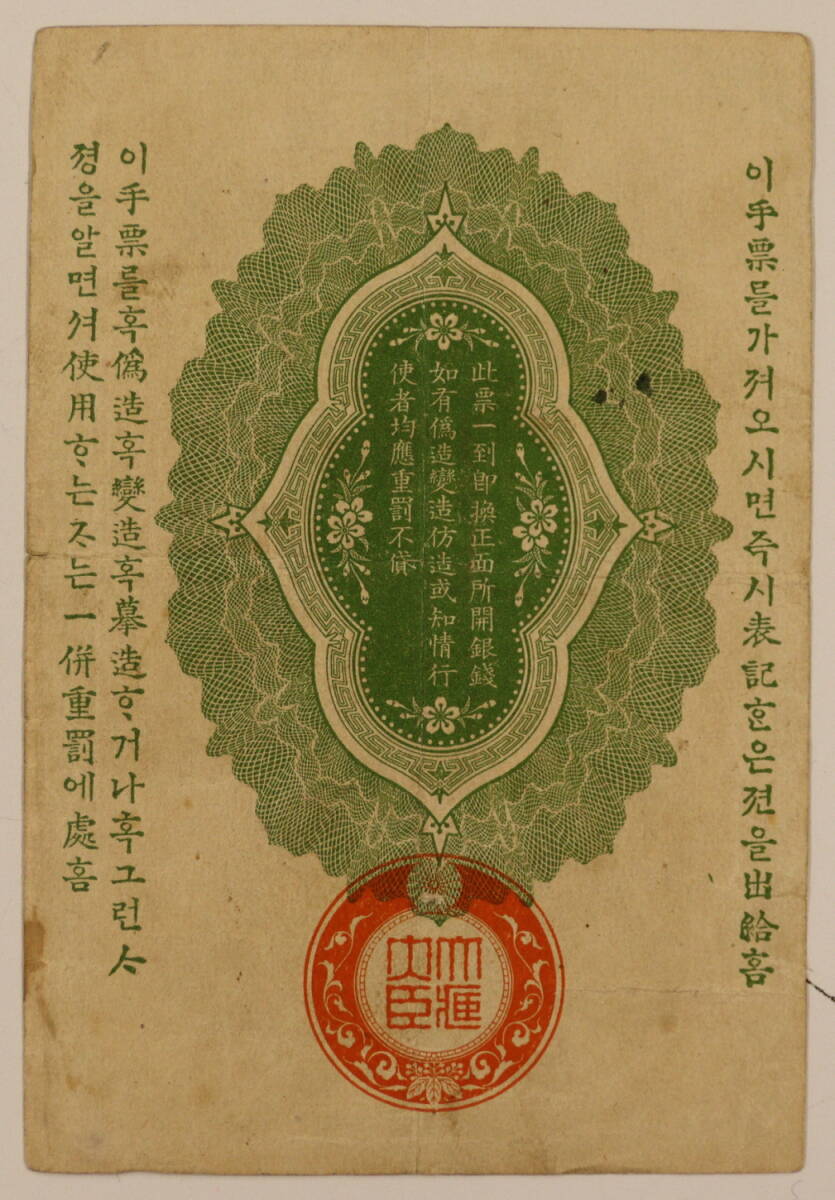 이手票를가져오시면즉시表記ᄒᆞᆫ은젼을出給홈
此票一到即換正面所開銀錢
如有僞造變造仿造或知情行
使者均應重罰不貸
이手票를혹僞造혹變造혹摹造ᄒᆞ거나혹그런ᄉᆞ
졍을알면셔使用ᄒᆞ는ᄌᆞ는一併重罰에處홈